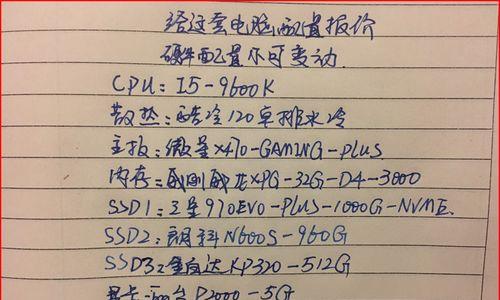 给这套电脑配置报价
硬件配置不可变动
CPU: I5-9600K
散热: 酷冷120单排水冷
主板: 微星X470-GAMING-PLUS
内存: 威刚威龙XPG-32G-D4-3000
SSD1: 三星970EVO-PLUS-1000G-NVME.
SSD2: 朗科N600S-960G
SSD3: 金百达KP320-512G
显卡- P2000-5G